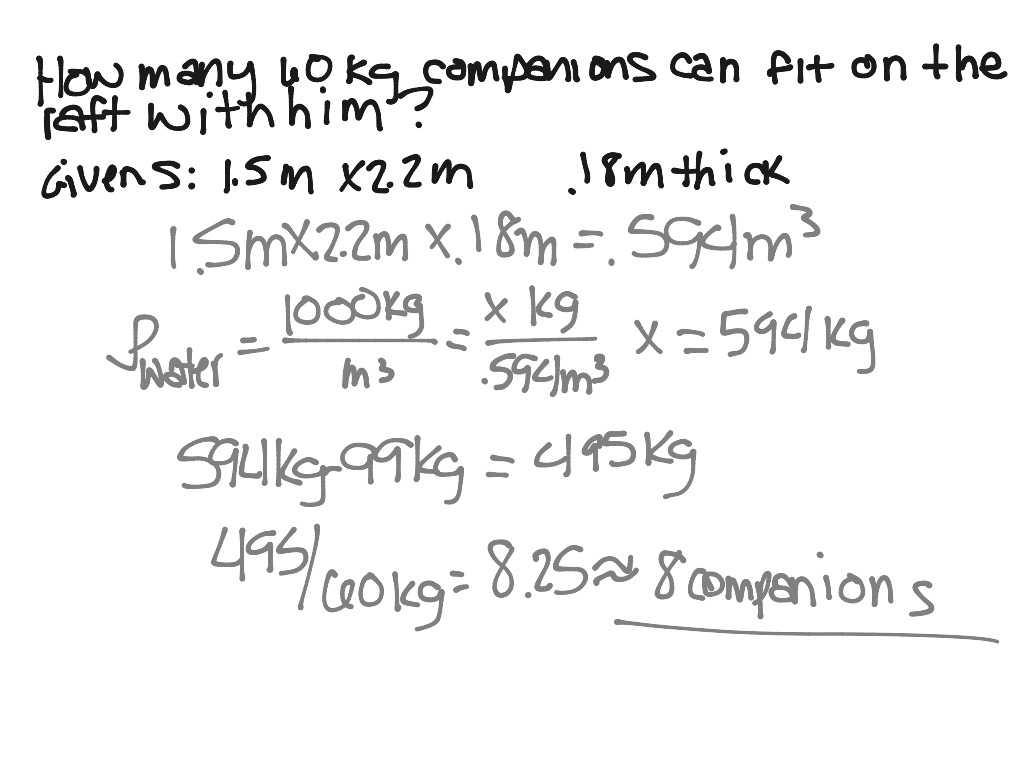 How many 60 kg companions can fit on the
raft with him?
Givens: 1.5m x2.2m .18m thick
1.5m×2.2m ×.18m = .594m³
ρwater = 1000kg/m³ = x kg/.594m³ x = 594 kg
594kg-99kg = 495kg
495/60kg = 8.25 ≈ 8 companions